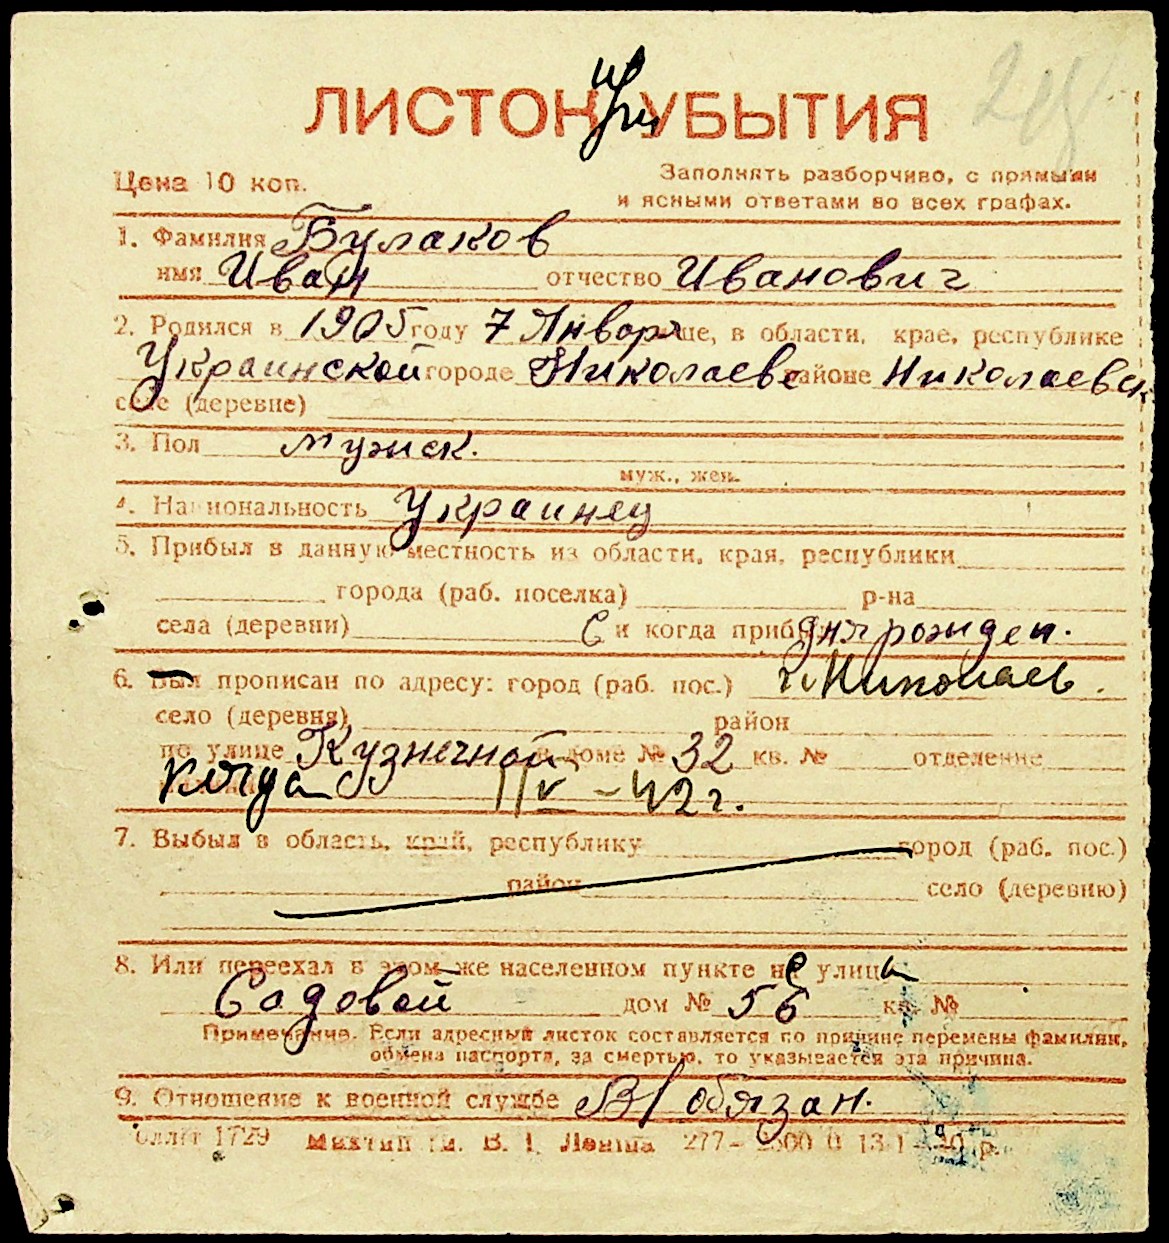 ЛИСТОК УБЫТИЯ
Цена 10 коп.
Заполнять разборчиво, с прямыми
и ясными ответами во всех графах.
1. Фамилия Булаков
имя Иван отчество Иванович
2. Родился в 1905 году 7 Января в области, крае, республике
Украинской городе Николаеве районе Николаевск
селе (деревне)
3. Пол мужск.
муж., жен.
4. Национальность Украинец
5. Прибыл в данную местность из области, края, республики
города (раб. поселка) р-на
села (деревни) С и когда прибыл дня рожден.
6. Был прописан по адресу: город (раб. пос.) г. Николаев.
село (деревня) район
по улице Кузнечной в доме № 32 кв. № отделение
когда 11/V - 42 г.
7. Выбыл в область, край, республику город (раб. пос.)
район село (деревню)
8. Или переехал в этом же населенном пункте на улица
Садовой дом № 56 кв. №
Примечание. Если адресный листок составляется по причине перемены фамилии,
обмена паспорта, за смертью, то указывается эта причина.
9. Отношение к военной службе В/обязан.
1729 В. І. Леніна 277-